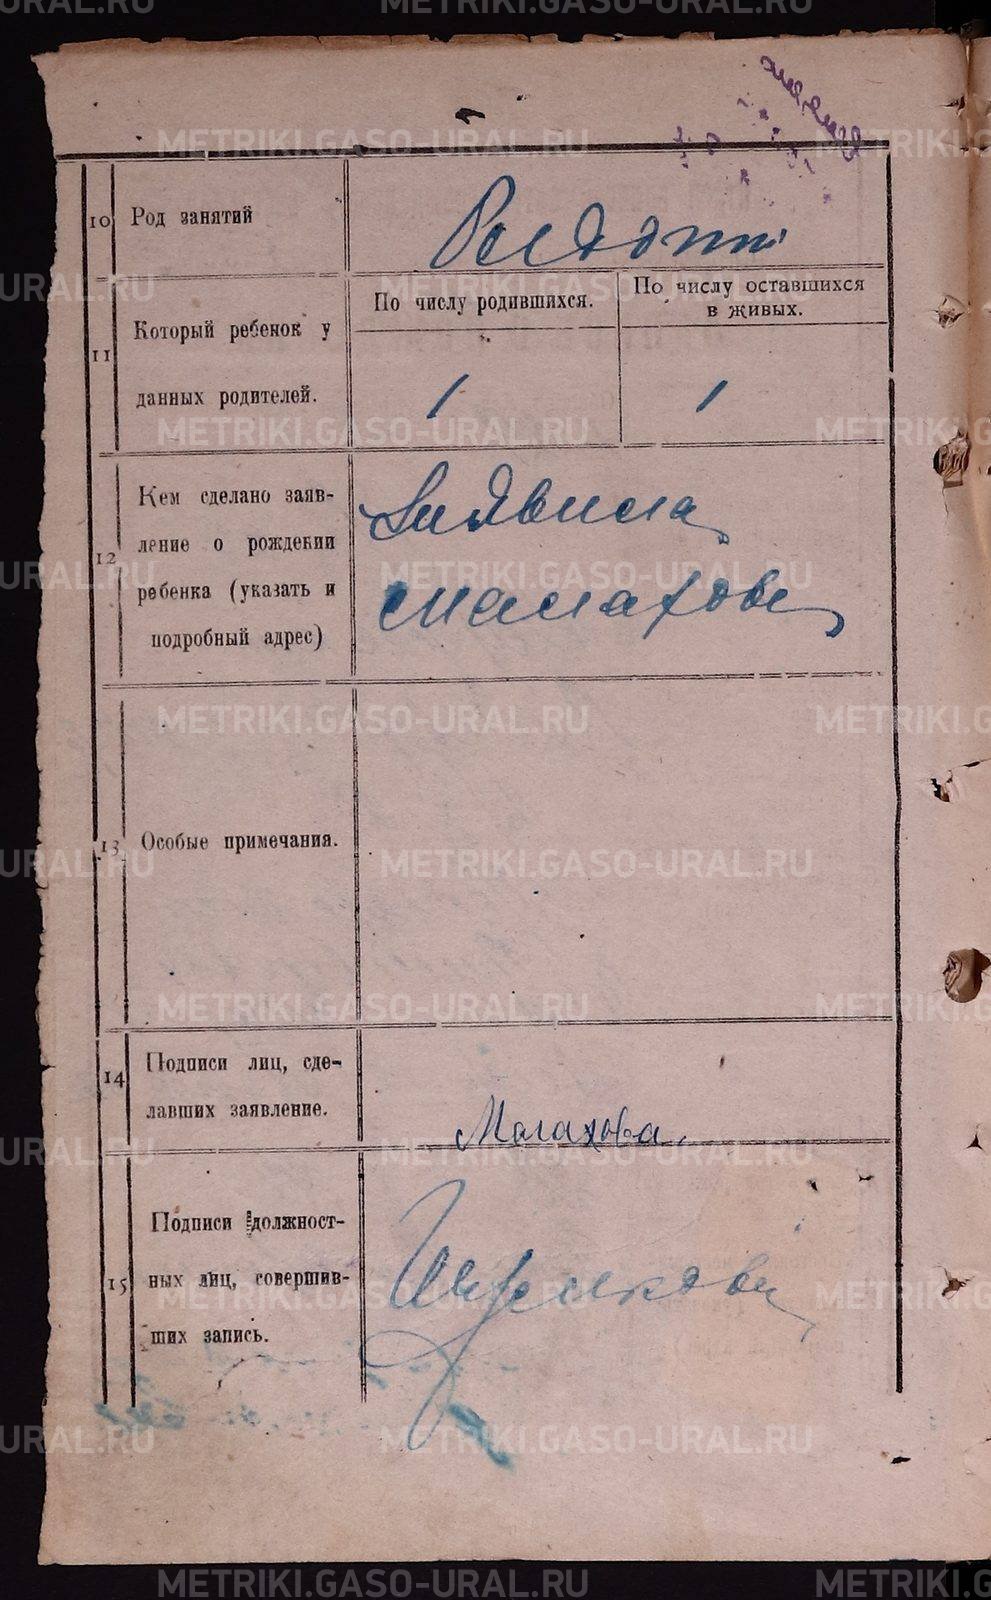 10 Род занятий
11 Который ребенок у
данных родителей.
По числу родившихся.
По числу оставшихся
в живых.
1 1
12 Кем сделано заяв-
ление о рождении
ребенка (указать и
подробный адрес)
Заявила
Малахова
13 Особые примечания.
14 Подписи лиц, сде-
лавших заявление.
Малахова.
15 Подписи должност-
ных лиц, совершив-
ших запись.
METRIKI.GASO-URAL.RU